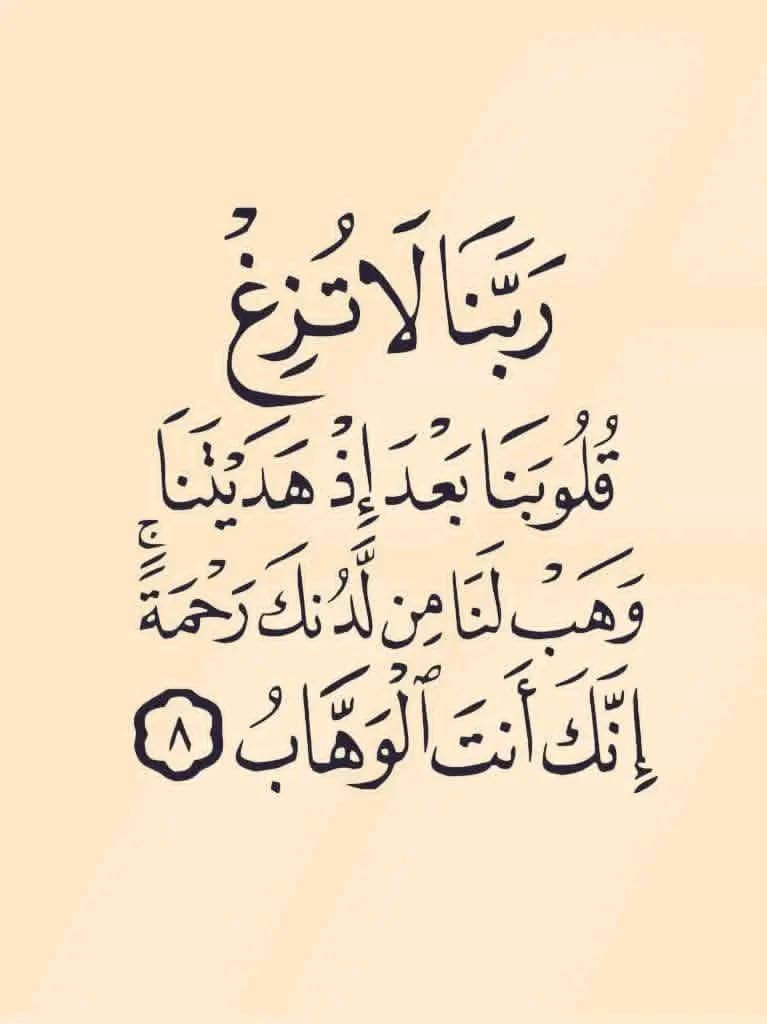 رَبَّنَا لَا تُزِغْ
قُلُوبَنَا بَعْدَ إِذْ هَدَيْتَنَا
وَهَبْ لَنَا مِن لَّدُنكَ رَحْمَةً ۚ
إِنَّكَ أَنتَ ٱلْوَهَّابُ ٨